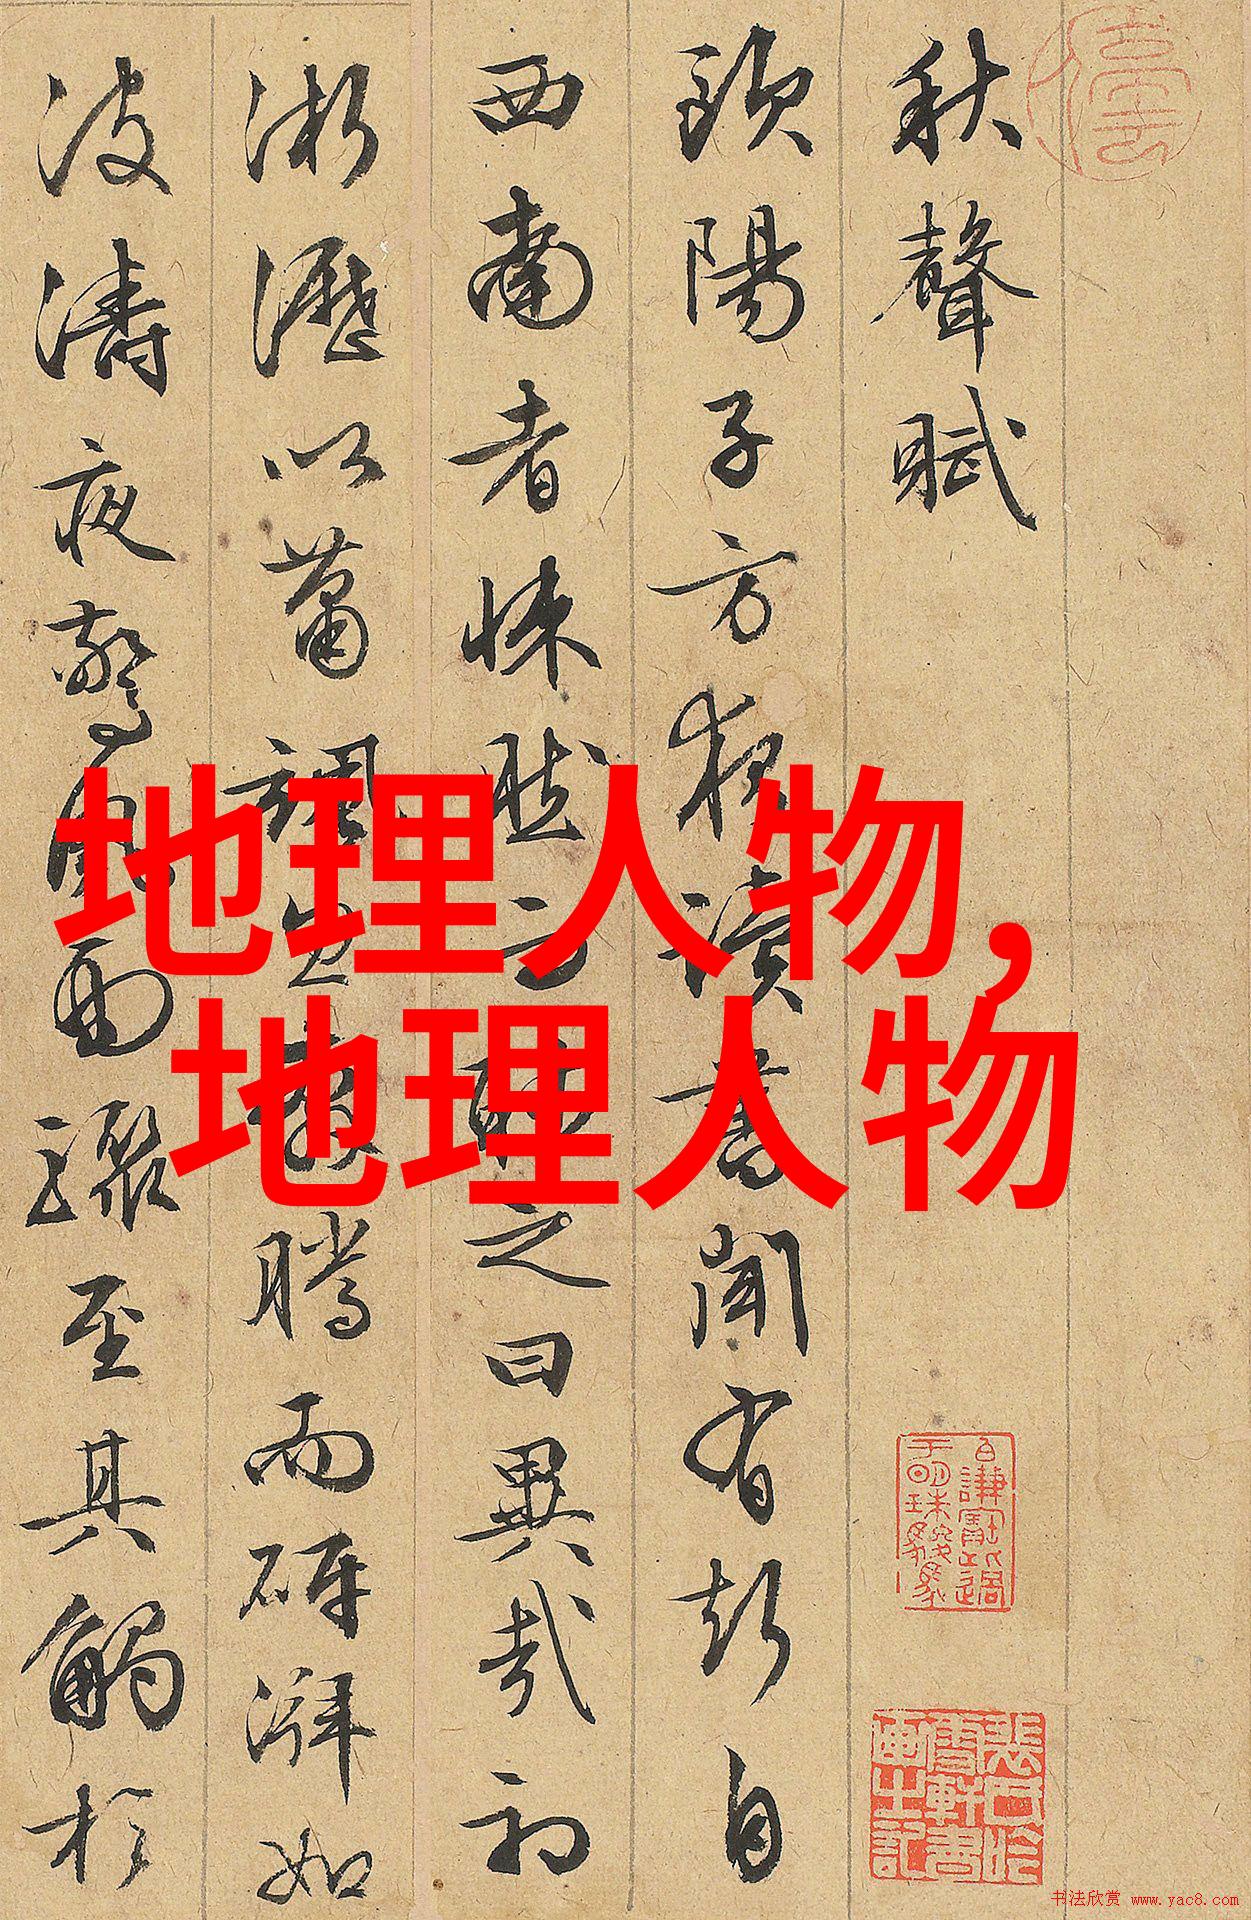 秋聲賦
歐陽子方夜讀書聞有聲自
西南者悚然而聽之曰異哉初
淅瀝以蕭颯忽奔騰而砰湃如
波濤夜驚風雨驟至其觸於
地理人物，
地理人物
书法欣赏 www.yac8.com